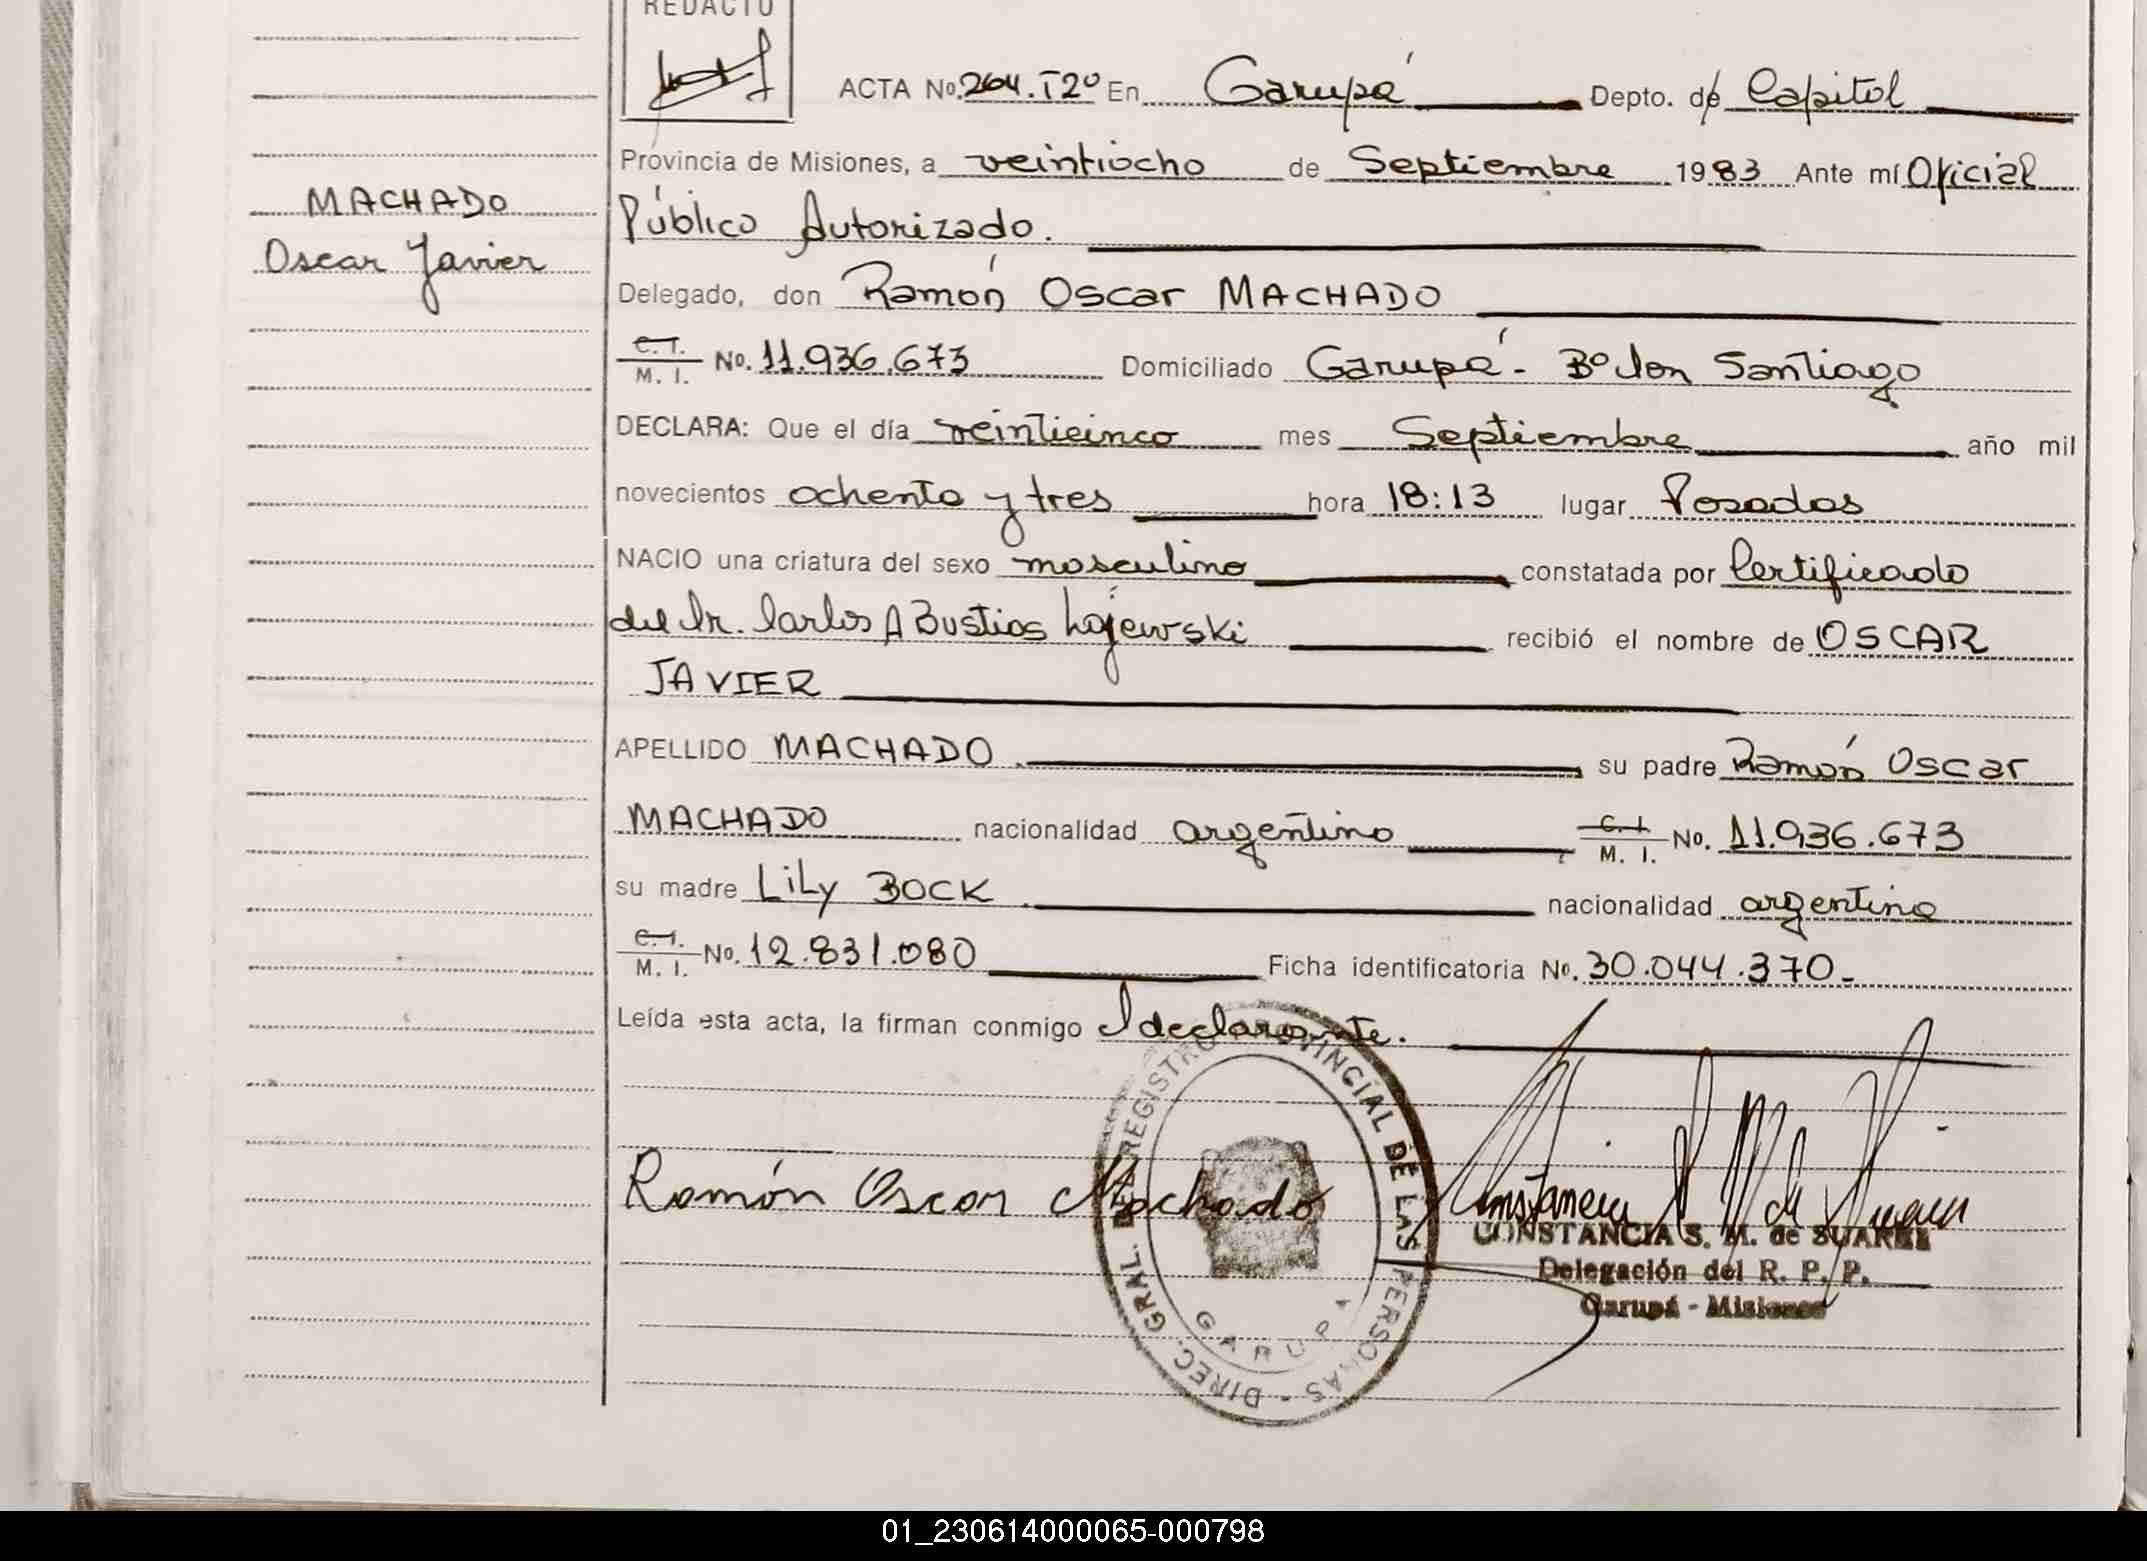 REDACTO
ACTA No. 264.T2º En Garupá Depto. de Capital
Provincia de Misiones, a veintiocho de Septiembre 1983 Ante mí Oficial
MACHADO
Público Autorizado.
Oscar Javier
Delegado, don Ramón Oscar MACHADO
C.I. M. I. No. 11.936.673 Domiciliado Garupá - Bº don Santiago
DECLARA: Que el día veinticinco mes Septiembre año mil
novecientos ochenta y tres hora 18:13 lugar Posadas
NACIO una criatura del sexo masculino constatada por Certificado
del Dr. Carlos A Bustios Lojewski recibió el nombre de OSCAR
JAVIER
APELLIDO MACHADO su padre Ramón Oscar
MACHADO nacionalidad argentino C.I. M. I. No. 11.936.673
su madre LiLy BOCK nacionalidad argentina
C.I. M. I. No. 12.831.080 Ficha identificatoria No. 30.044.370.-
Leída esta acta, la firman conmigo el declarante.
DIREC. GRAL. DEL REGISTRO PROVINCIAL DE LAS PERSONAS -
GARUPA
Ramón Oscar Machado
CONSTANCIA S. M. de SUAREZ
Delegación del R. P. P.
Garupá - Misiones
01_230614000065-000798